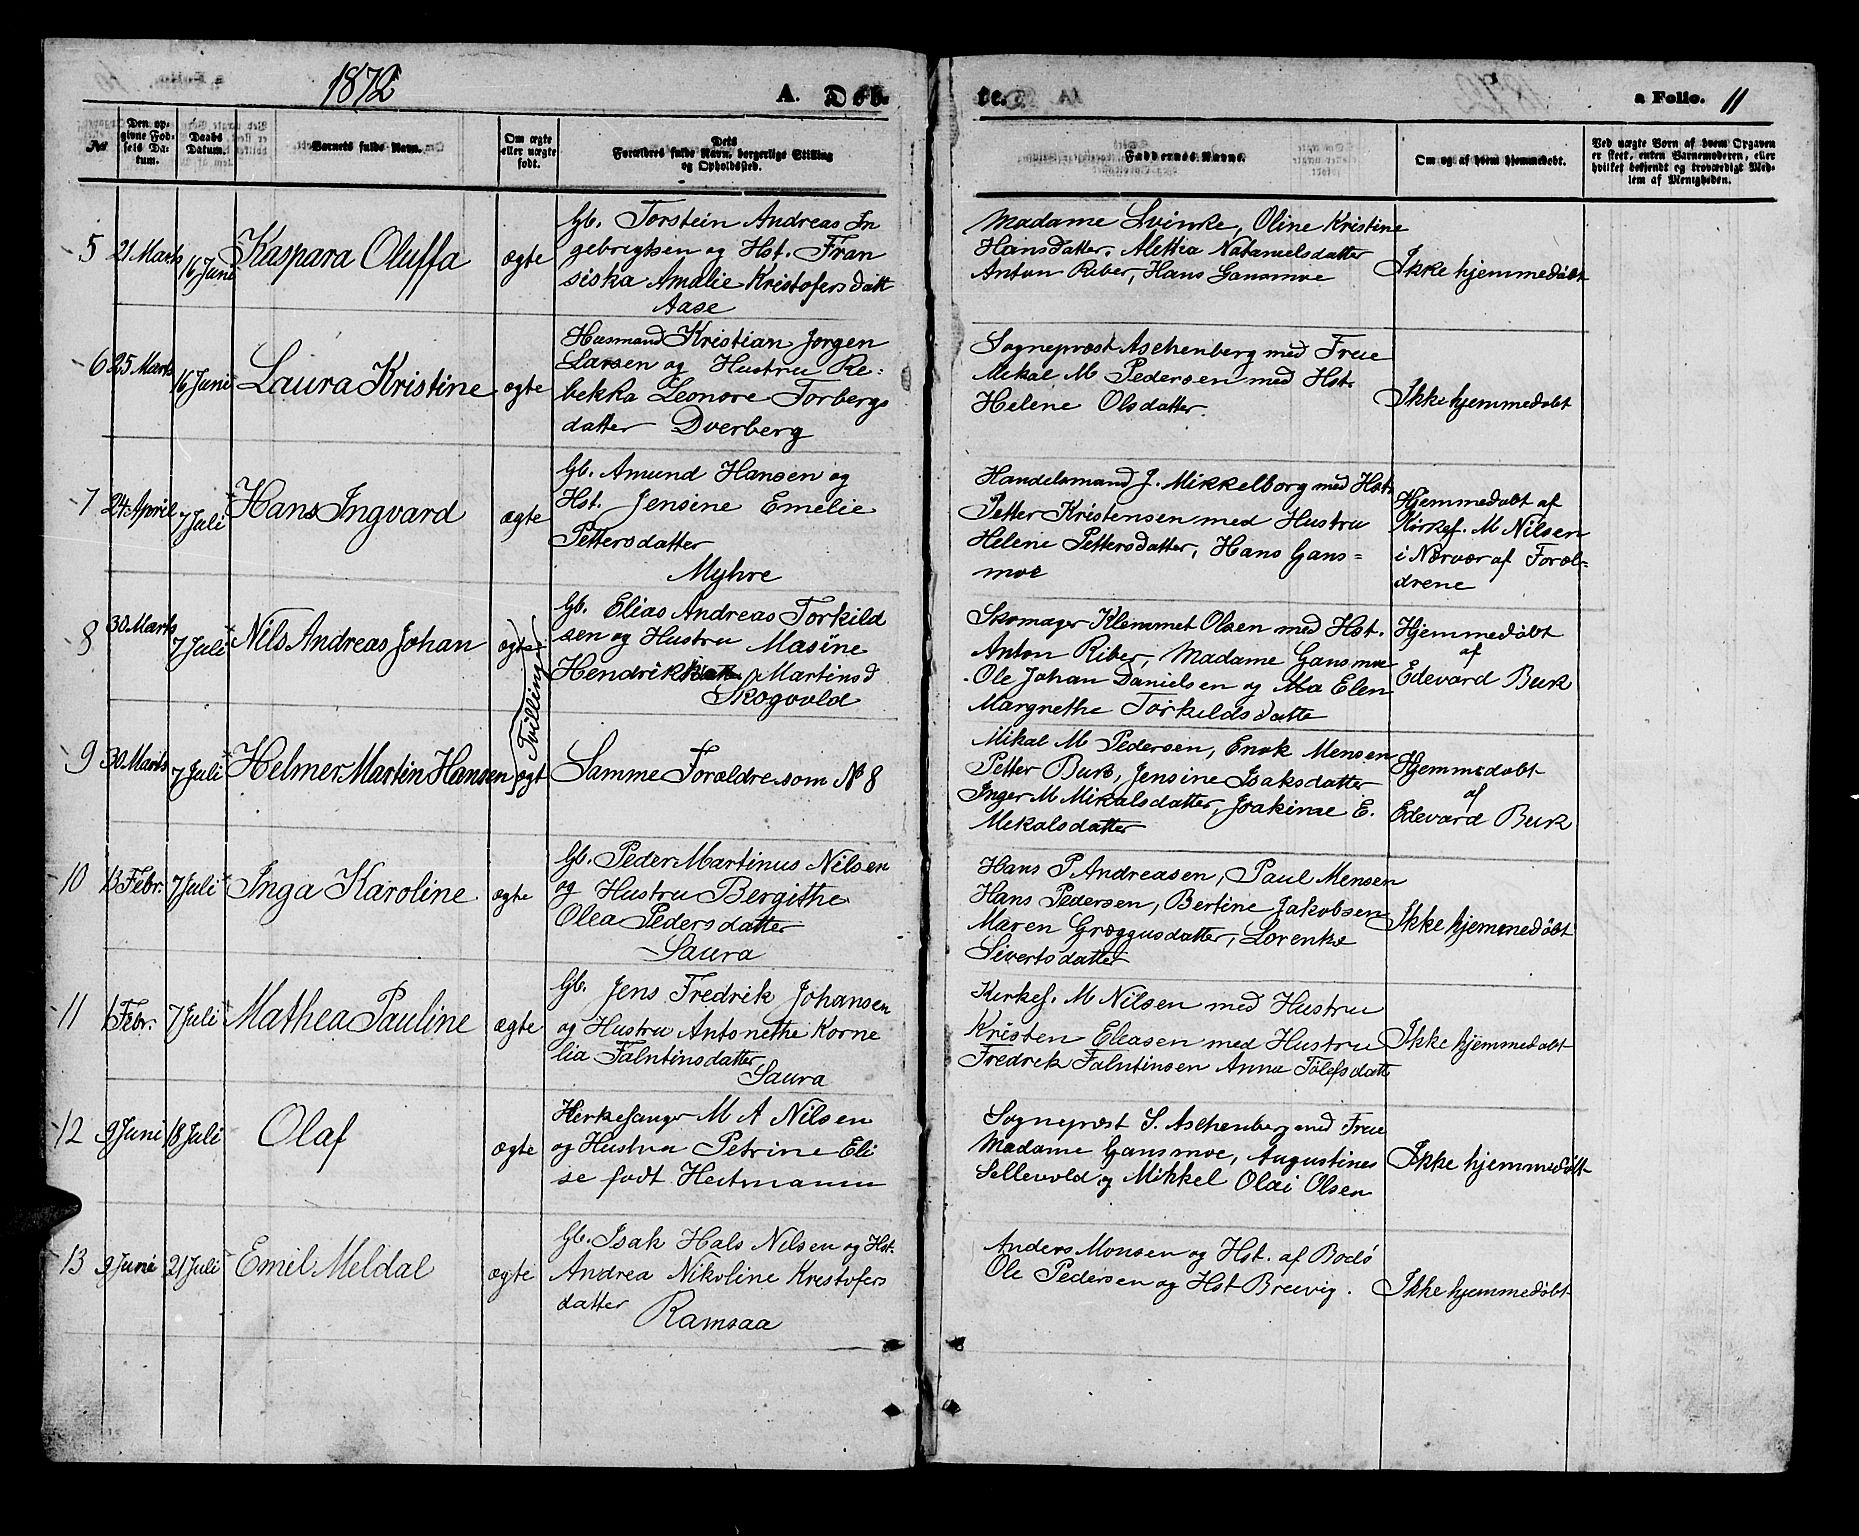 1872 A. Døb- te. a Folio. 11
No
Den op-
givne Fød-
sels Da-
tum.
Daabs
Datum.
Barnets fulde Navn.
Om ægte
eller uægte
født.
Dets
Forældres fulde Navn, borgerlige Stilling
og Opholdssted.
Faddernes Navne.
Om og af hvem hjemmedøbt.
Ved uægte Børn af hvem Opgaven
er skeet, enten Barnemoderen, eller
hvilket bekjendt og troværdigt Med-
lem af Menigheden.
5 21 Marts 16 Juni Kaspara Oluffa ægte
Gb. Torstein Andreas In
gebrigtsen og Hst. Fran
siska Amalie Kristofersdatt
Aase
Madame Svinke, Oline Kristine
Hansdatter, Alettea Natanielsdatter
Anton Riber, Hans Gansmoe
Ikke hjemmedøbt
6 25 Marts 16 Juni Laura Kristine ægte
Husmand Kristian Jørgen
Larsen og Hustru Re-
bekka Leonore Torbergs
datter Dverberg
Sognepræst Aschenberg med Frue
Mikal M Pedersen med Hst.
Helene Olsdatter.
Ikke hjemmedøbt
7 24 April 7 Juli Hans Ingvard ægte
Gb. Amund Hansen og
Hst. Jensine Emelie
Pettersdatter
Myhre
Handelsmand J. Mikkelborg med Hst.
Petter Kristensen med Hustru
Helene Pettersdatter, Hans Gans=
moe
Hjemmedøbt af
Kirkes. M Nilsen
i Nærvær af Foræl-
drene
8 30 Marts 7 Juli Nils Andreas Johan ægte
Tvilling
Gb. Elias Andreas Torkild
sen og Hustru Masine
Hendrikka Martinsd
Skogvold
Skomager Klemmet Olsen med Hst.
Anton Riber, Madame Gansmoe
Ole Johan Danielsen og Ma Elen
Margrethe Torkildsdatte
Hjemmedøbt
af
Edevard Buk
9 30 Marts 7 Juli Helmer Martin Hansen ægt
Samme Forældre som No 8
Mikal M Pedersen, Enok Mensen
Petter Buk, Jensine Isaksdatter
Inger M Mikalsdatter, Joakime E.
Mekalsdatter
Hjemmedøbt
af
Edevard Buk
10 13 Febr. 7 Juli Inga Karoline ægte
Gb. Peder Martinus Nilsen
og Hustru Bergithe
Olea Pedersdatter
Saura
Hans P Andreasen, Paul Mensen
Hans Pedersen, Bertine Jakobsen
Maren Græggusdatter, Lorentse
Sivertsdatter
Ikke hjemmedøbt
11 1 Febr. 7 Juli Mathea Pauline ægte
Gb. Jens Fredrik Johansen
og Hustru Antonethe Korne
lia Falntinsdatter
Saura
Kerkes. M Nilsen med Hustru
Kristen Eleasen med Hustru
Fredrek Falntinsen Anne Tolefsdatt
Ikke hjemmedøbt
12 9 Juni 18 Juli Olaf ægte
Kerkesanger M A Nilsen
og Hustru Petrine Eli
se født Heitmann
Sognepræst S. Aschenberg med Frue
Madame Gansmoe, Augustines
Sellevold og Mikkel Olai Olsen
Ikke hjemmedøbt
13 9 Juni 21 Juli Emil Meldal ægte
Gb. Isak Hals Nilsen og Hst.
Andrea Nikoline Krestofers
datter
Ramsaa
Anders Monsen og Hst. af Bodø
Ole Pedersen og Hst Breivig.
Ikke hjemmedøbt